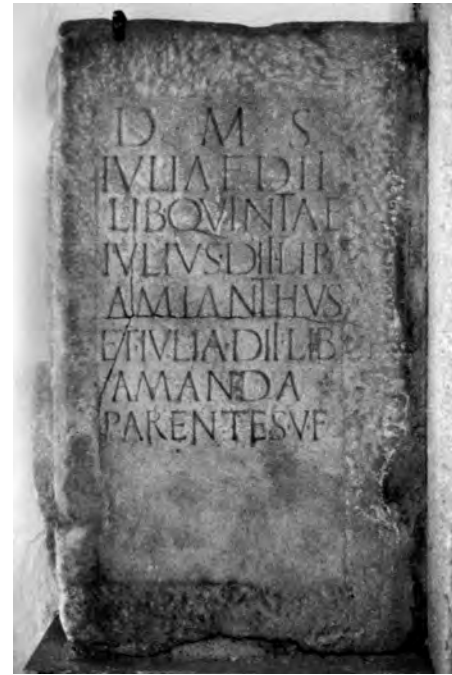 D M S
IVLIAE DII
LIB QVINTAE
IVLIVS·DII·LIB
AMIANTHVS
ET·IVLIA·DII·LIB
AMANDA
PARENTES·VF